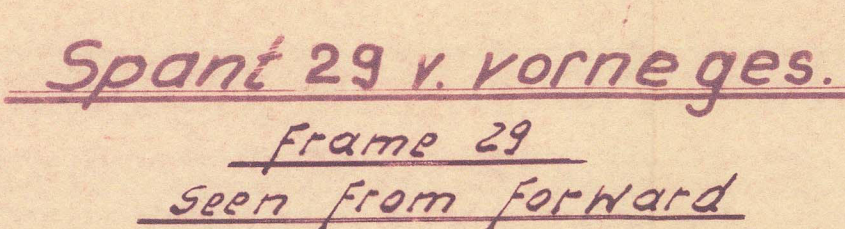 Spant 29 v. vorne ges.
Frame 29
seen from forward